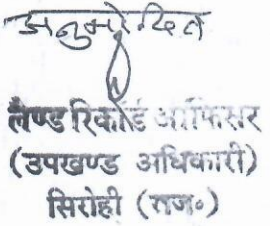 अनुमोदित
लैण्ड रिकॉर्ड आफिसर
(उपखण्ड अधिकारी)
सिरोही (राज॰)